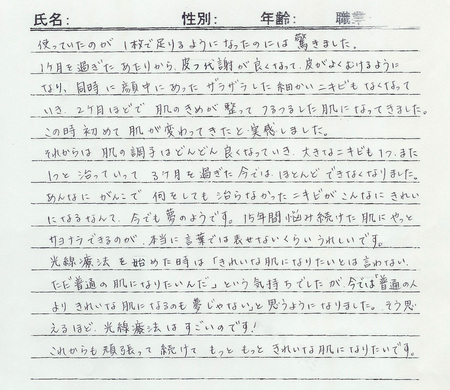 氏名: 性別: 年齢: 職業
使っていたのが 1枚で足りるようになったのには 驚きました。
1ヶ月を過ぎた あたりから、皮フ代謝が 良くなって、皮がよくむけるように
なり、同時に 顔中にあった ザラザラした 細かい ニキビも なくなって
いき、2ヶ月ほどで 肌のきめが 整って つるつるした 肌になってきました。
この時 初めて 肌が変わってきたと 実感しました。
それからは 肌の調子はどんどん 良くなっていき、大きなニキビも 1つ、また
1つと 治っていって 3ヶ月を 過ぎた 今では ほとんど できなくなりました。
あんなに がんこで 何をしても 治らなかった ニキビが こんなに きれい
になるなんて、今でも 夢のようです。15年間 悩み続けた 肌に やっと
サヨナラ できるのが、本当に 言葉では 表せない くらい うれしいです。
光線療法 を 始めた 時は「きれいな 肌に なりたいとは 言わない、
ただ 普通の 肌に なりたいんだ」という 気持ち でしたが、今では「普通の人
より きれいな 肌になるのも 夢 じゃない」と 思うようになりました。そう思
えるほど、光線療法は すごいのです!
これからも 頑張って 続けて もっと もっと きれいな 肌に なりたいです。